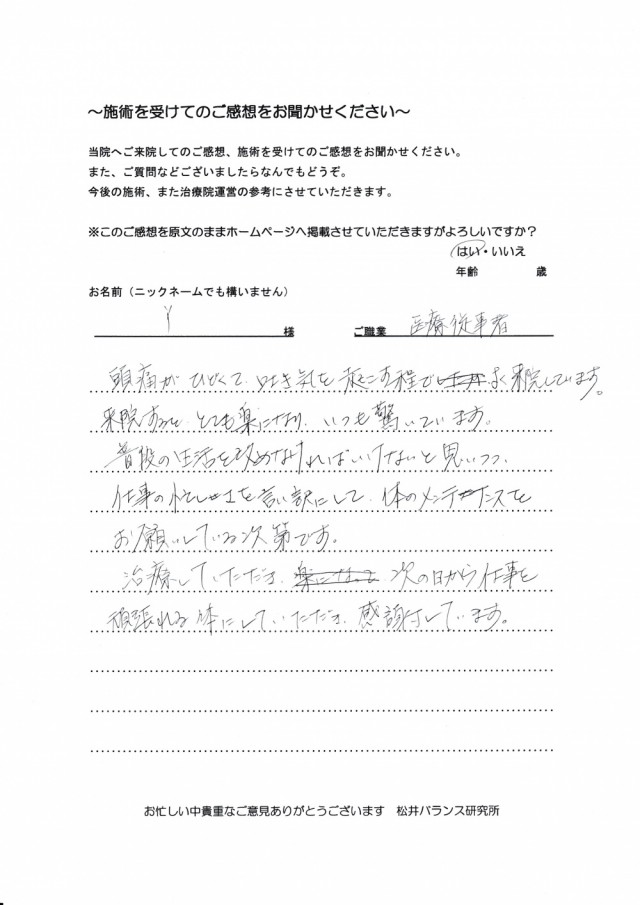 ～施術を受けてのご感想をお聞かせください～
当院へご来院してのご感想、施術を受けてのご感想をお聞かせください。
また、ご質問などございましたらなんでもどうぞ。
今後の施術、また治療院運営の参考にさせていただきます。
※このご感想を原文のままホームページへ掲載させていただきますがよろしいですか？
はい・いいえ
年齢 歳
お名前（ニックネームでも構いません）
Y 様 ご職業 医療従事者
頭痛がひどくて、吐き気を起こす程で よく来院しています。
来院すると、とても楽になり、いつも驚いています。
普段の生活を改めなければいけないと思いつつ、
仕事の忙しさを言い訳にして、体のメンテナンスを
お願いしている次第です。
治療していただき、楽になる 次の日から仕事を
頑張れる体にしていただき、感謝しています。
お忙しい中貴重なご意見ありがとうございます 松井バランス研究所